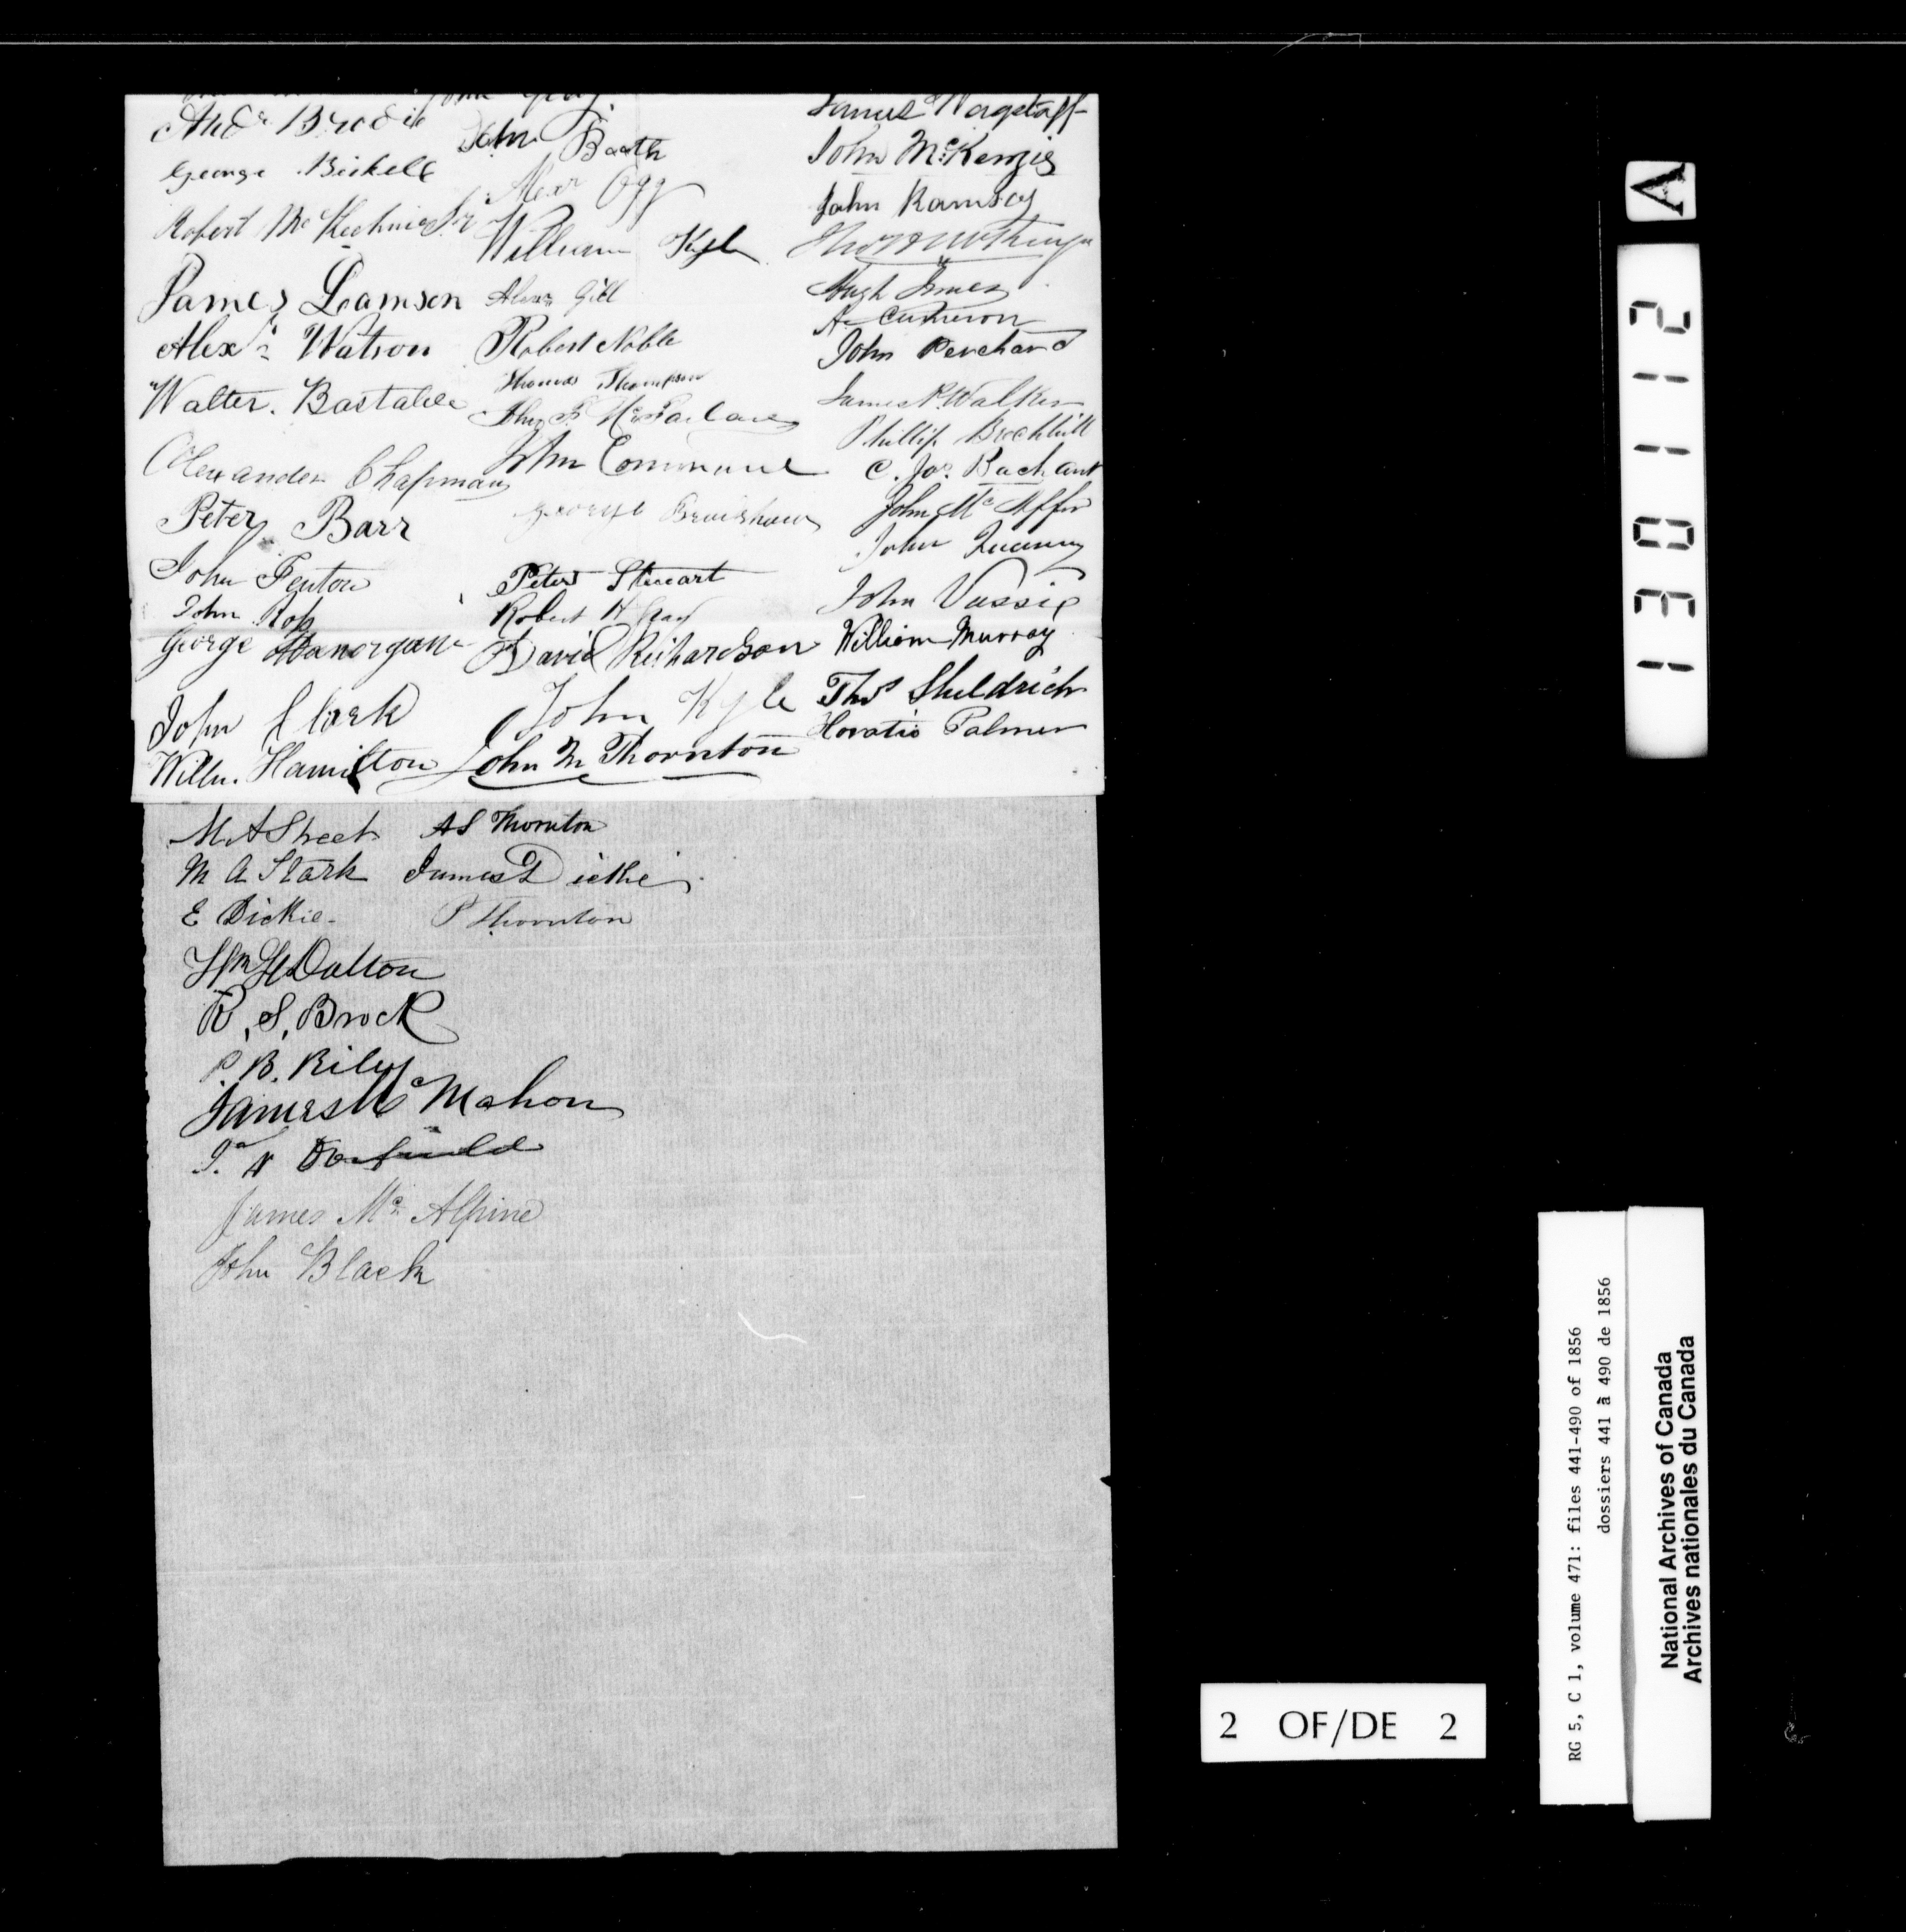 Andw Brodie
George Bickell
Robert McKechnie Jr
James Leamson
Alexr Watson
Walter. Bastable
Alexander Chapman
Peter Barr
John Fenton
John Ross
George
John Clark
Willm. Hamilton
John Booth
Alexr Ogg
William Kyle
Alexr Gill
Robert Noble
Thomas Thompson
McFarlane
John
George Bradshaw
Peter Stewart
Robert H Gray
David Richardson
John Kyle
John M Thornton
James Wagstaff
John McKenzie
John Ramsay
Hugh Innes
A Cameron
John Perchard
James R. Walker
Phillip Brechbill
C. Jos. Rachant
John Mc
John
John Vassie
William Murray
Thos Sheldrick
Horatio Palmer
M. A Street
M A Stark
E Dickie
Wm H Dalton
R. S. Brock
P. B. Riley
James McMahon
James McAlpine
John Black
A S Thornton
James Dickie
P Thornton
A
130112
2 OF/DE 2
RG 5, C 1, volume 471: files 441-490 of 1856
dossiers 441 à 490 de 1856
National Archives of Canada
Archives nationales du Canada